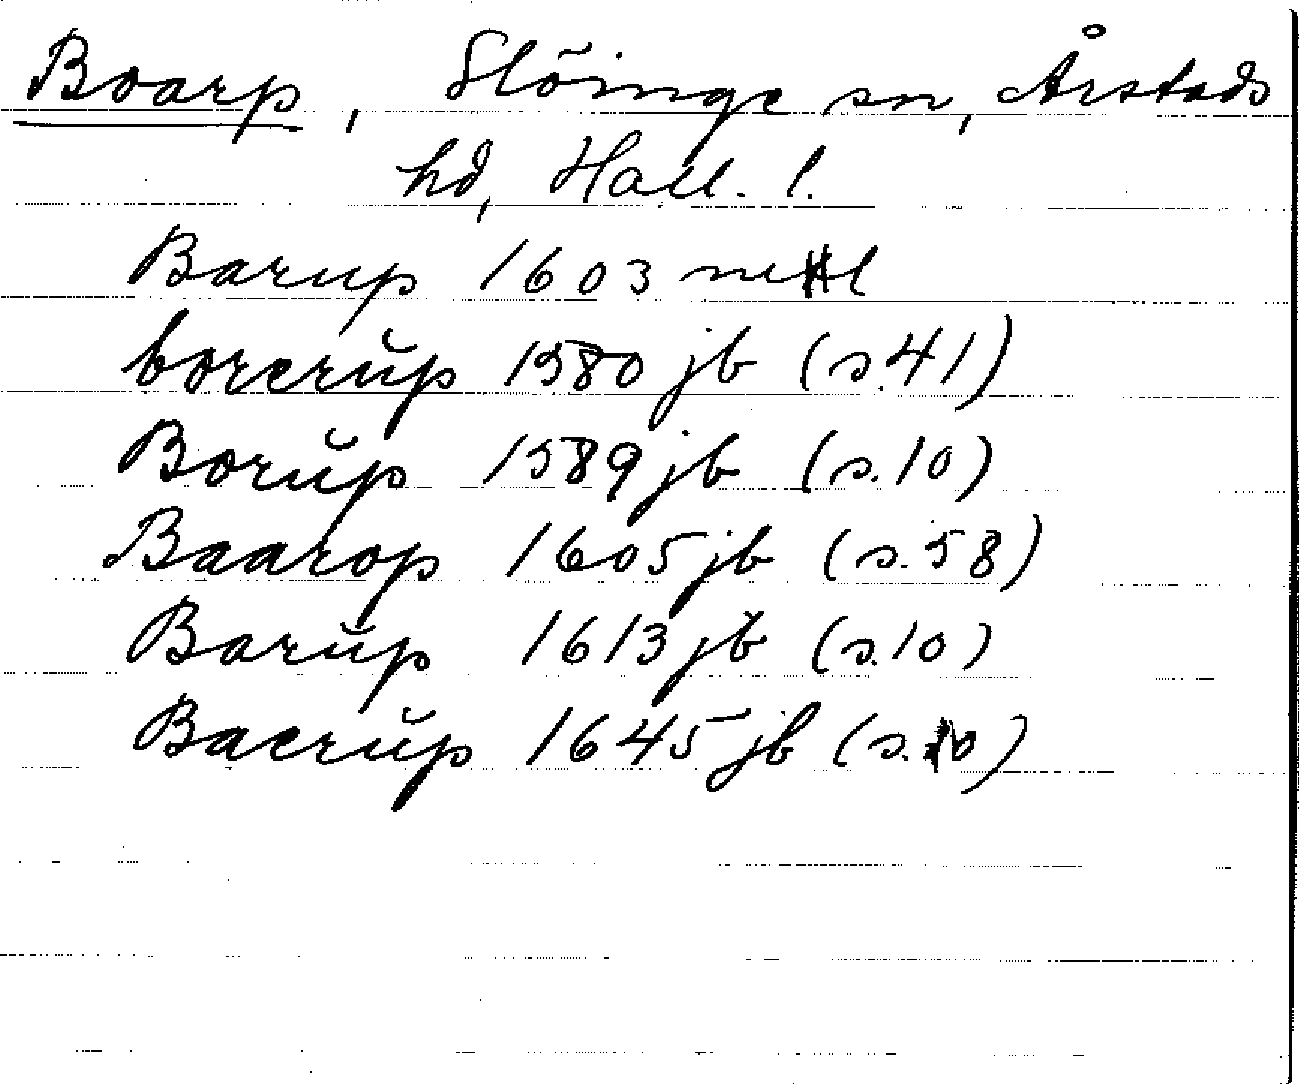 Boarp, Slöinge sn, Årstads
hd, Hall. l.
Barup 1603 mtl
borerŭp 1580 jb (s.41)
Borŭp 1589 jb (s.10)
Baarop 1605 jb (s.58)
Barŭp 1613 jb (s.10)
Baerŭp 1645 jb (s.10)